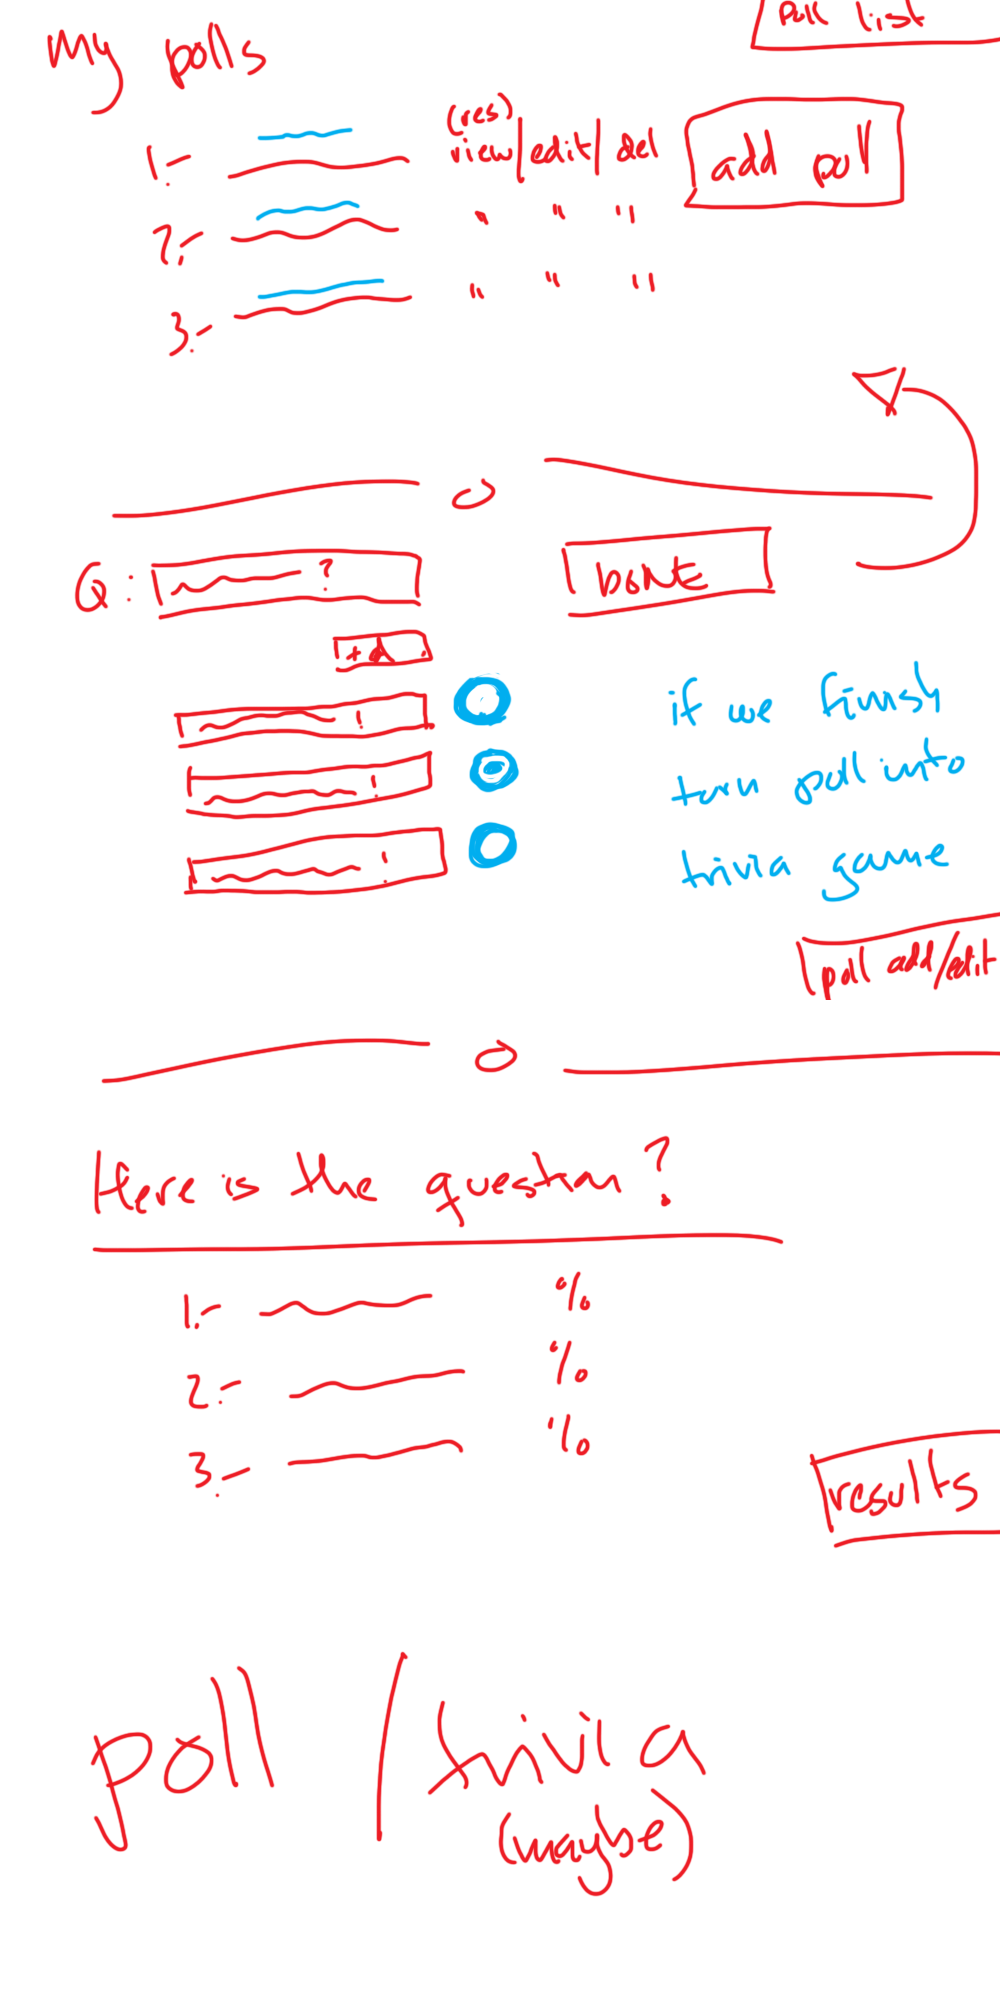 poll list
My polls
(res)
1.- view/edit/del add poll
2.- " " "
3.- " " "
Q: ?
+d
!
!
!
if we finish
turn poll into
trivia game
poll add/edit
Here is the question?
1.- %
2.- %
3.- %
results
poll / trivia
(maybe)